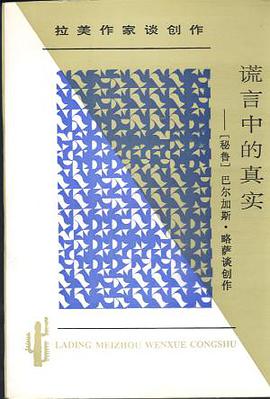 拉美作家谈创作
谎言中的真实
——[秘鲁]巴尔加斯·略萨谈创作
LADING MEIZHOU WENXUE CONGSHU